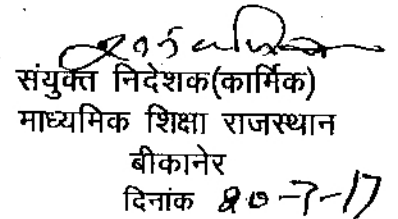 संयुक्त निदेशक(कार्मिक)
माध्यमिक शिक्षा राजस्थान
बीकानेर
दिनांक 20-7-17